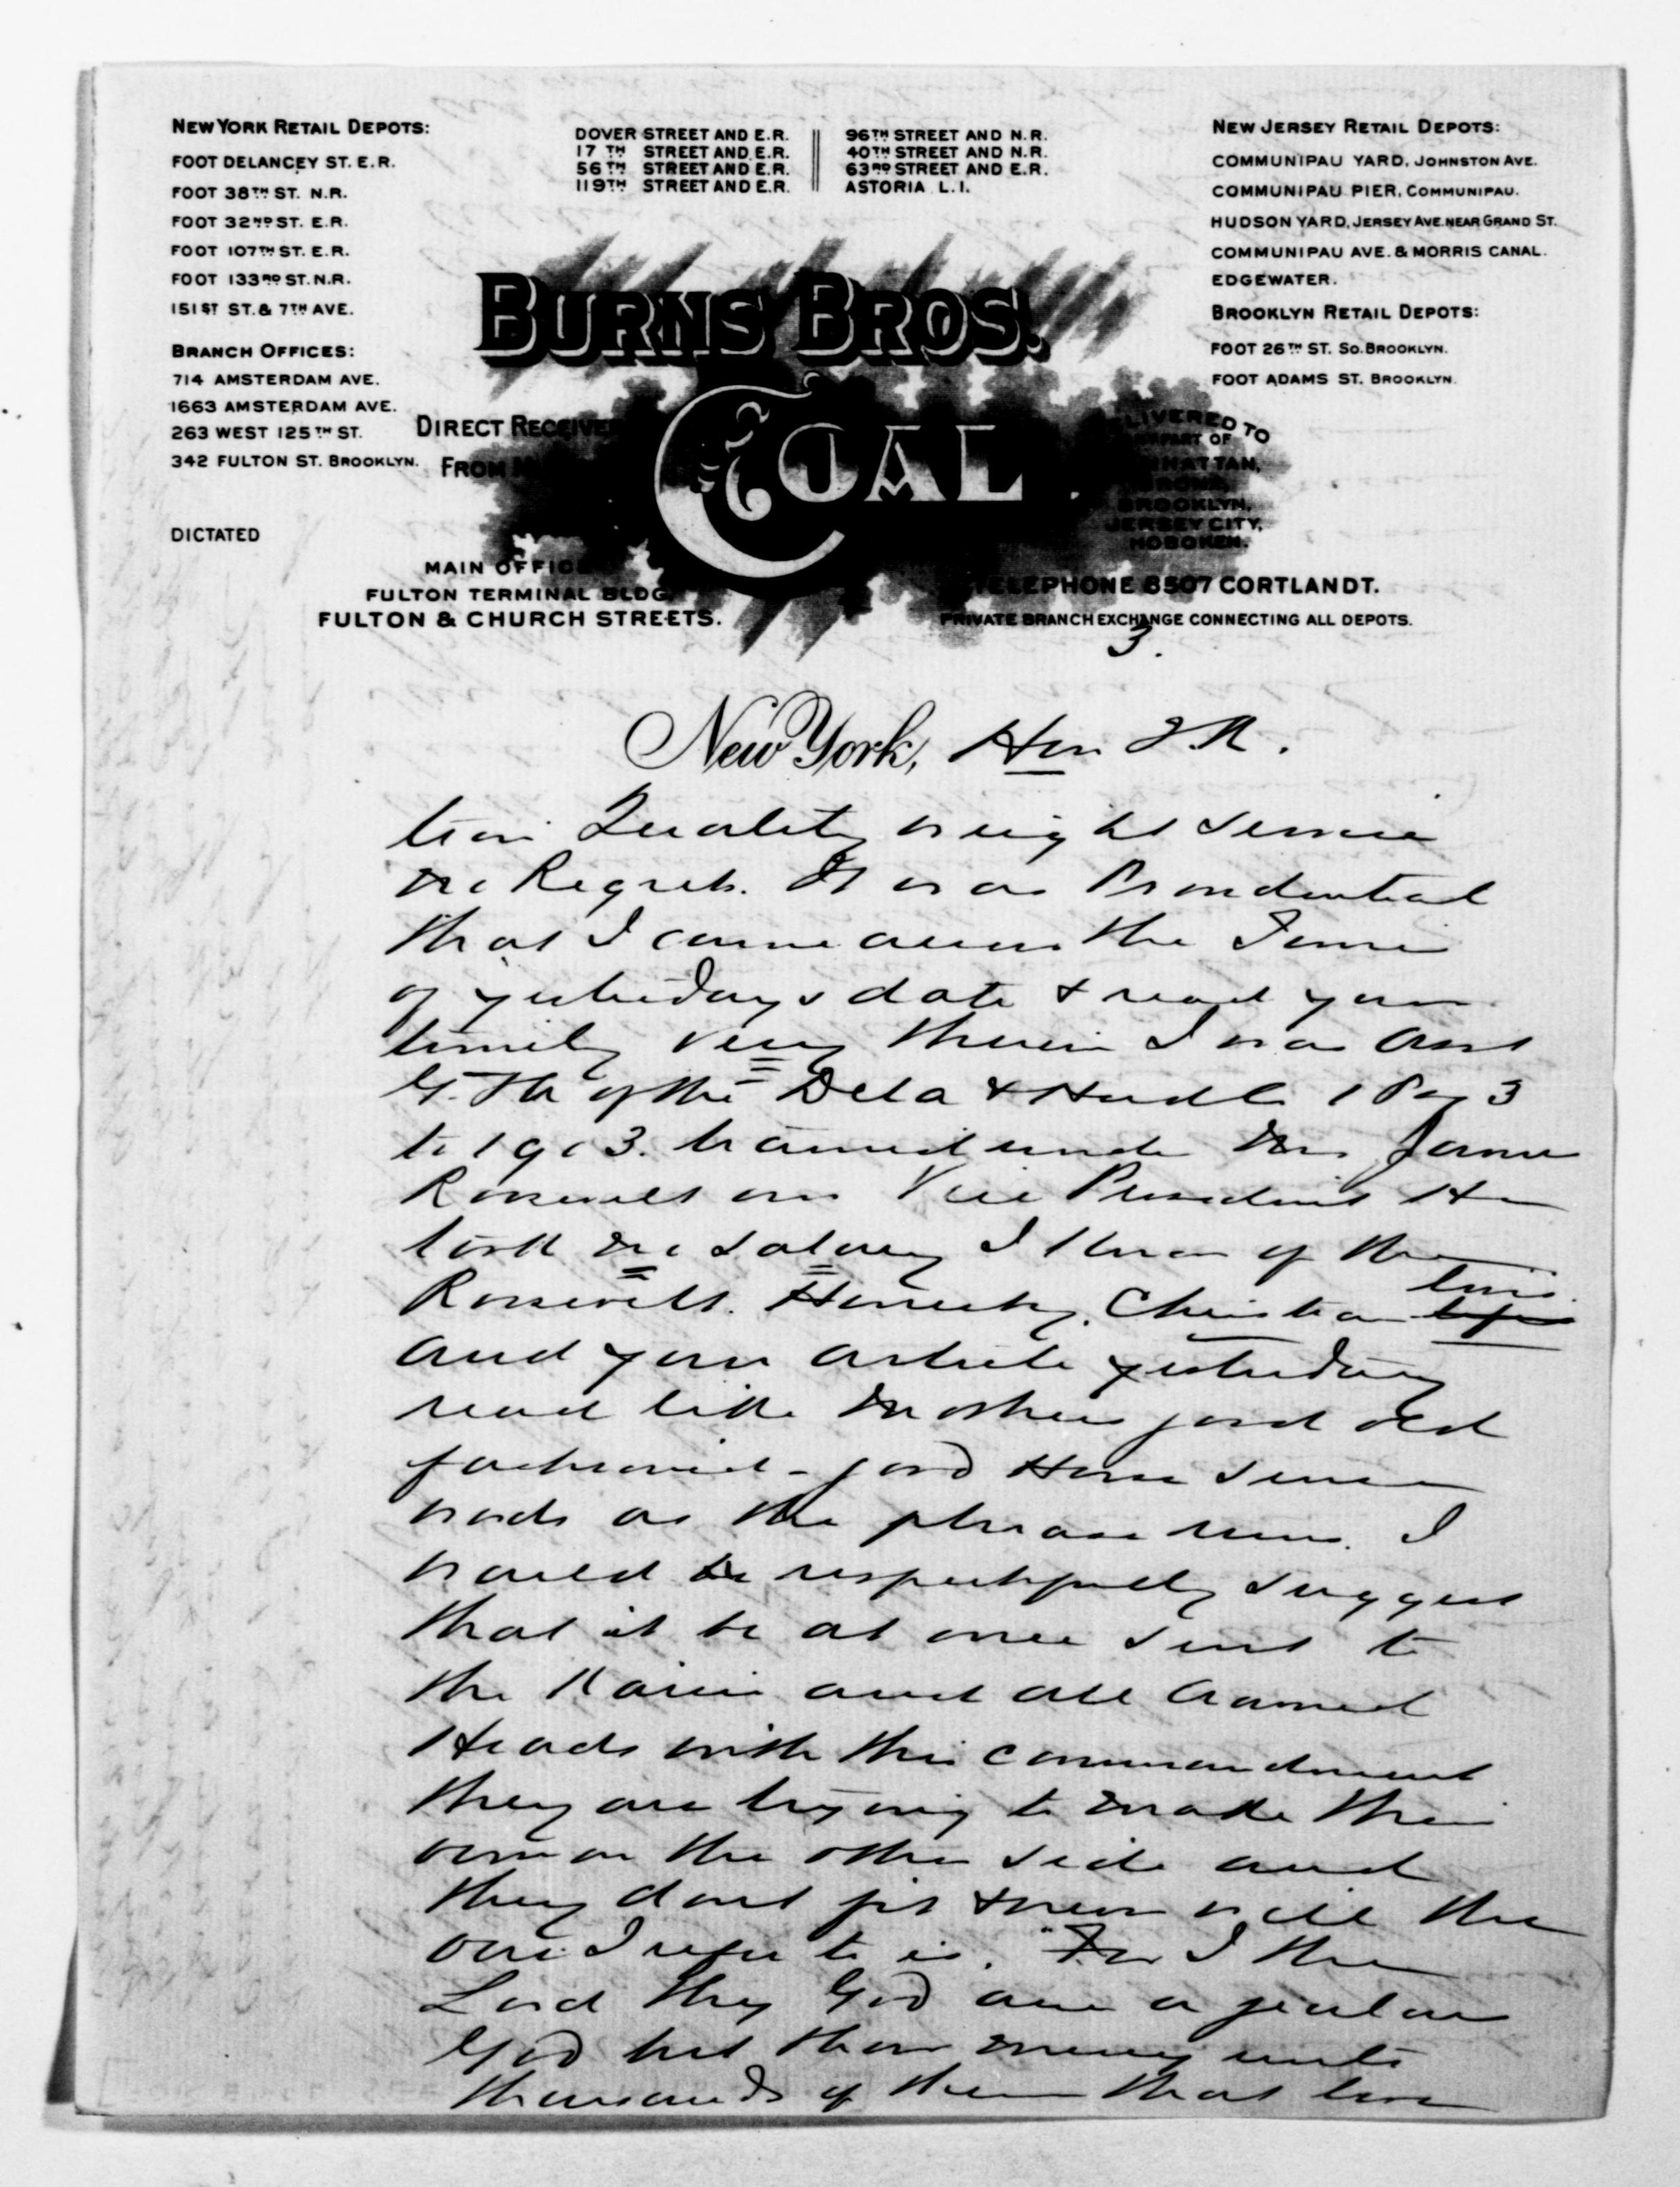 NEW YORK RETAIL DEPOTS:
FOOT DELANCEY ST. E.R.
FOOT 38TH ST. N.R.
FOOT 32ND ST. E.R.
FOOT 107TH ST. E.R.
FOOT 133RD ST. N.R.
151ST ST. & 7TH AVE.
BRANCH OFFICES:
714 AMSTERDAM AVE.
1663 AMSTERDAM AVE.
263 WEST 125TH ST.
342 FULTON ST. BROOKLYN.
DICTATED
DOVER STREET AND E.R.
17TH STREET AND E.R.
56TH STREET AND E.R.
119TH STREET AND E.R.
96TH STREET AND N.R.
40TH STREET AND N.R.
63RD STREET AND E.R.
ASTORIA L.I.
NEW JERSEY RETAIL DEPOTS:
COMMUNIPAU YARD, JOHNSTON AVE.
COMMUNIPAU PIER, COMMUNIPAU.
HUDSON YARD, JERSEY AVE. NEAR GRAND ST.
COMMUNIPAU AVE. & MORRIS CANAL.
EDGEWATER.
BROOKLYN RETAIL DEPOTS:
FOOT 26TH ST. SO. BROOKLYN.
FOOT ADAMS ST. BROOKLYN.
BURNS BROS.
COAL
DIRECT RECEIVE
FROM
LIVERED TO
PART OF
HATTAN,
BRONX,
BROOKLYN,
JERSEY CITY,
HOBOKEN.
MAIN OFFICE
FULTON TERMINAL BLDG.
FULTON & CHURCH STREETS.
TELEPHONE 8507 CORTLANDT.
PRIVATE BRANCH EXCHANGE CONNECTING ALL DEPOTS.
3.
New York, Hon T.R.
tion Quality weight service
no Regrets. It was Providential
that I came across the Times
of yesterdays date & read your
timely very therein I was Asst
G. of the Dela & Hud Co
to 1903. trained under Mr James
Roosevelt our Vice President He
took no salary I know of the
Roosevelt. Honesty. Christian lives
and your article yesterday
read like Mothers good old
fashioned - good Horse sense
words as the phrase runs. I
would respectfully suggest
that it be at once sent to
the Kaiser and all Crowned
Heads with this commandment
they are trying to make their
own on the other side and
they dont fit & never will the
one I refer to is. "For I the
Lord thy God am a jealous
God but show mercy unto
thousands of them that love